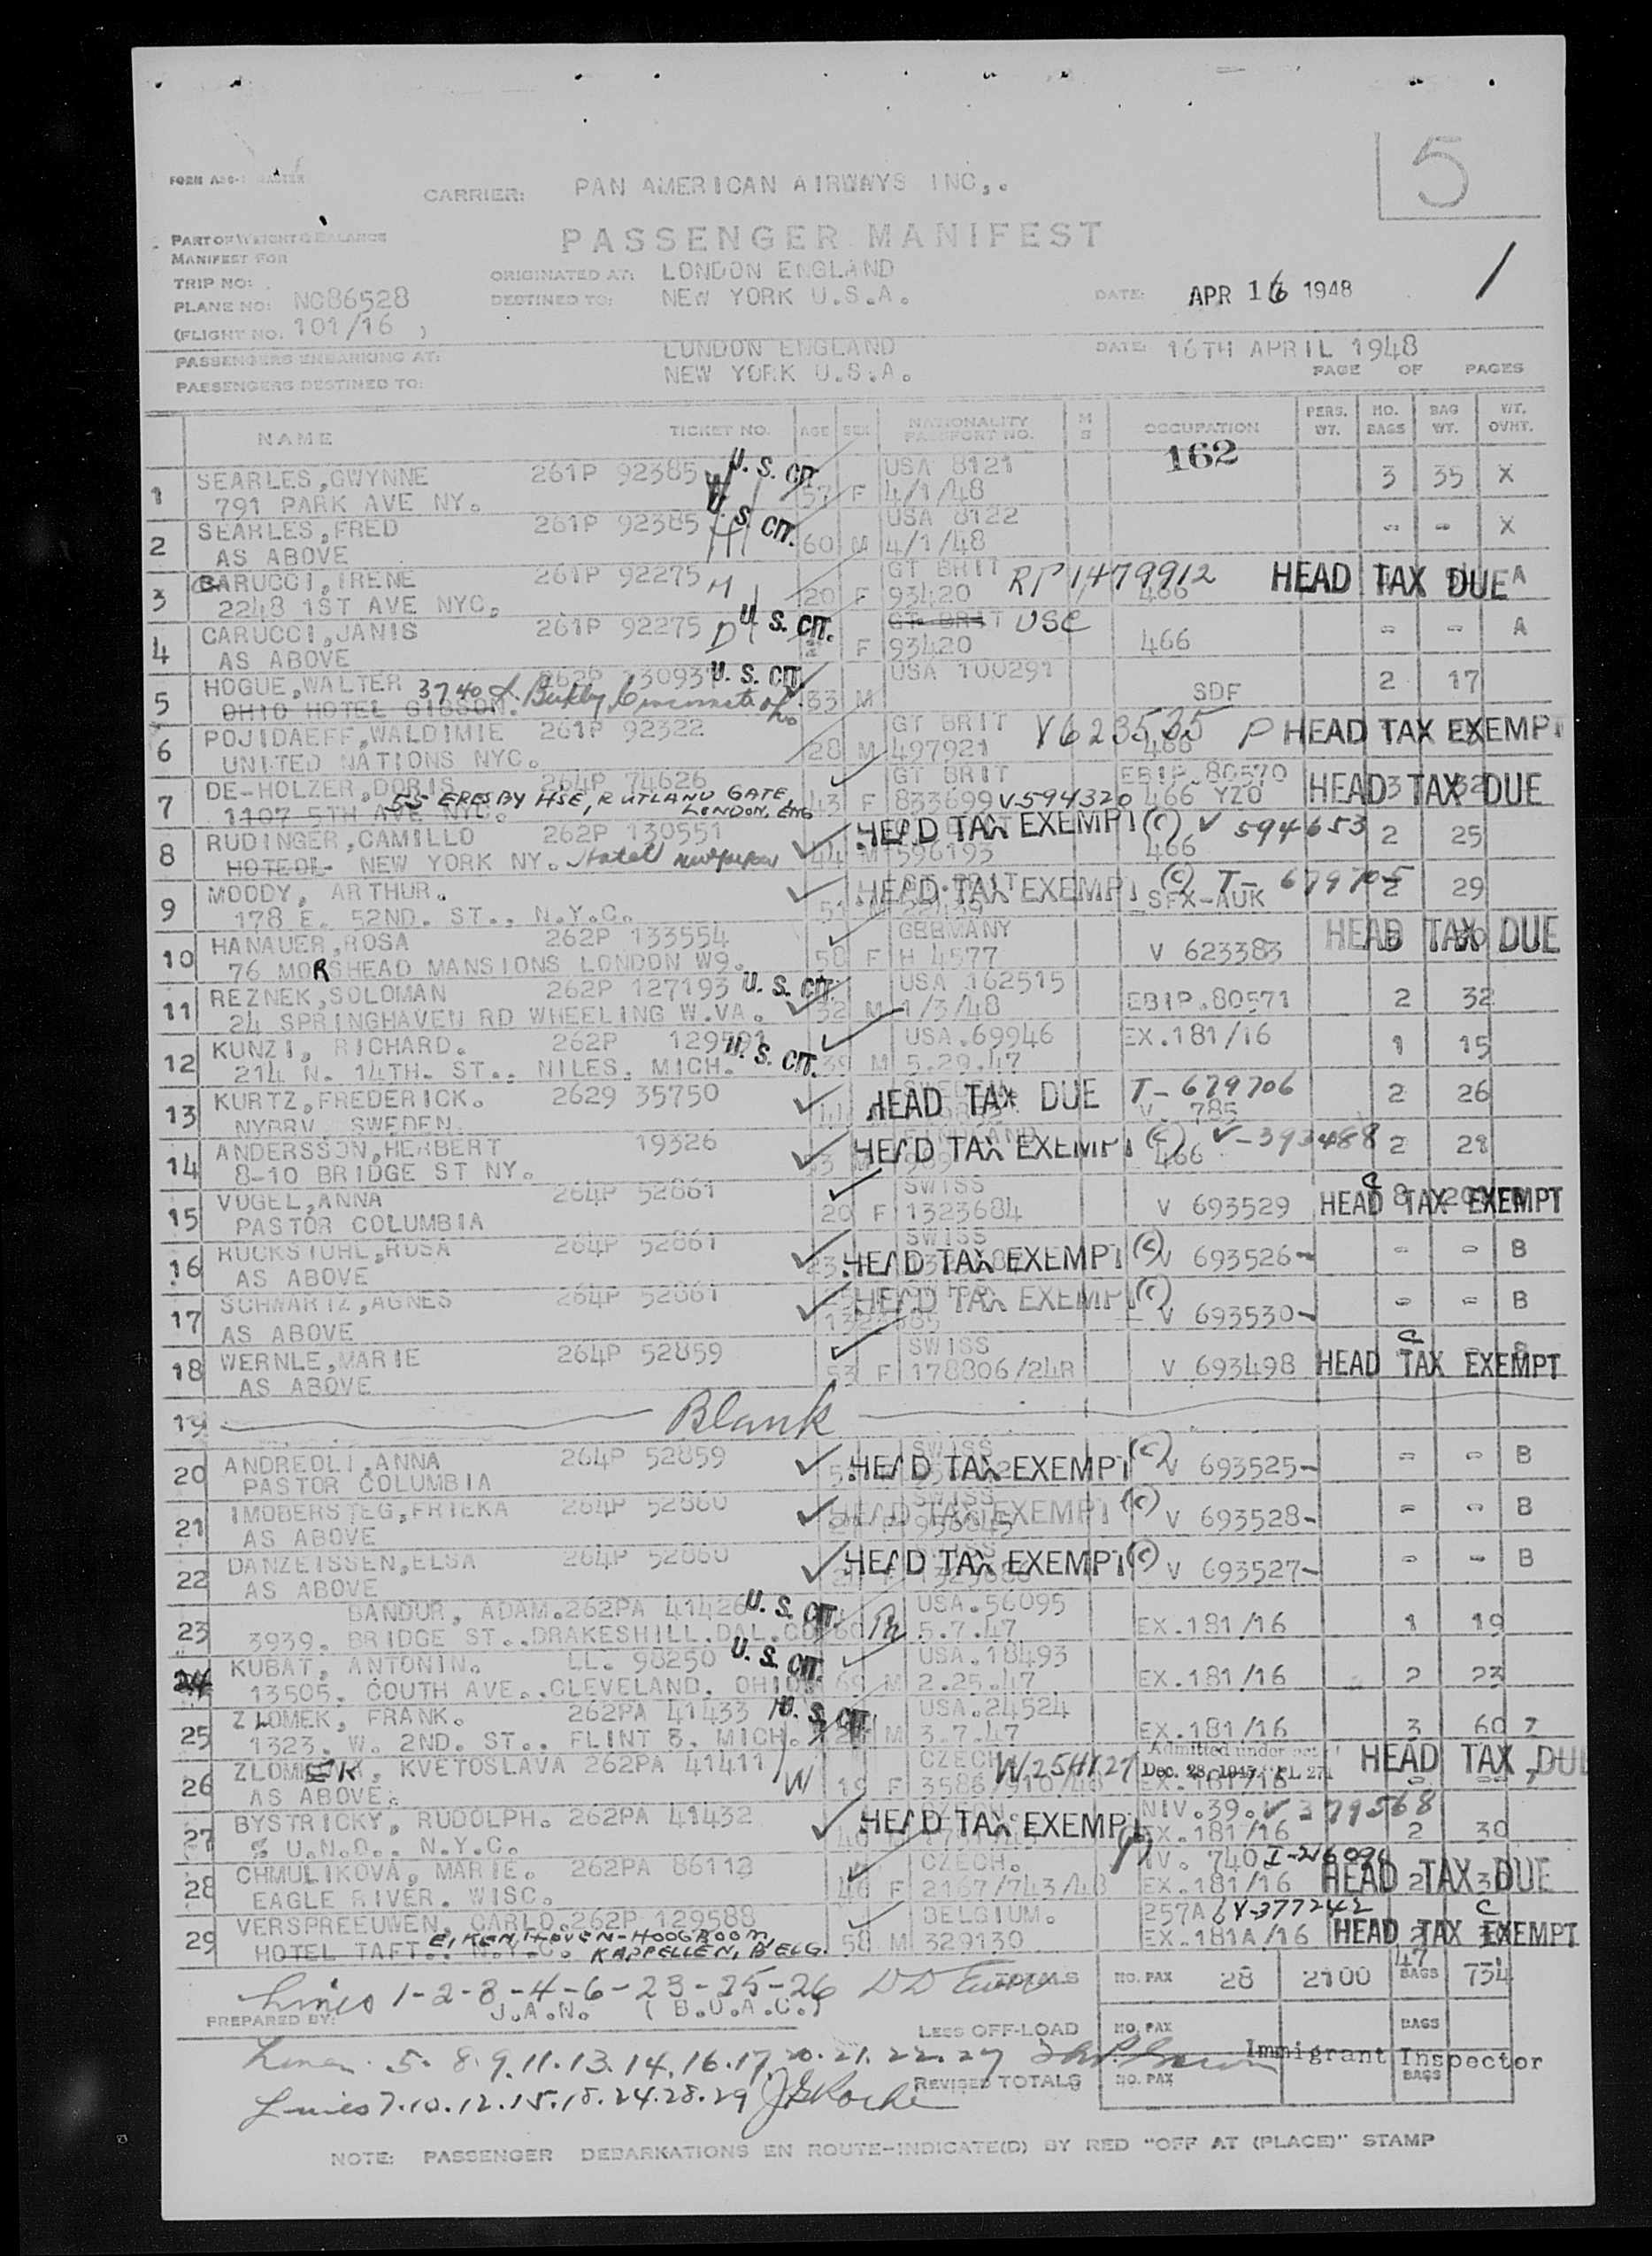 5
FORM
CARRIER: PAN AMERICAN AIRWAYS INC,.
PASSENGER MANIFEST
PART OF WEIGHT & BALANCE
MANIFEST FOR
TRIP NO:
PLANE NO: NC86528
(FLIGHT NO. 101/16 )
ORIGINATED AT: LONDON ENGLAND
DESTINED TO: NEW YORK U.S.A.
DATE: APR 16 1948
PASSENGERS EMBARKING AT: LONDON ENGLAND DATE: 16TH APRIL 1948
PASSENGERS DESTINED TO: NEW YORK U.S.A. PAGE OF PAGES
NAME TICKET NO. AGE SEX NATIONALITY PASSPORT NO. M S OCCUPATION PERS. WT. NO. BAGS BAG WT. WT. OVHT.
162
1 SEARLES,GWYNNE 261P 92385 U. S. CIT. 57 F USA 8121 3 35 X
791 PARK AVE NY. 4/1/48
2 SEARLES,FRED 261P 92385 U. S. CIT. 60 M USA 8122 - - X
AS ABOVE 4/1/48
3 CARUCCI,IRENE 261P 92275 M 20 F GT BRIT RP 1479912 HEAD TAX DUE A
2248 1ST AVE NYC. 93420 466
4 CARUCCI,JANIS 261P 92275 D U. S. CIT. F GT BRIT USC - - A
AS ABOVE 93420 466
5 HOGUE,WALTER 262P 13093 U. S. CIT. 33 M USA 100291 2 17
OHIO HOTEL GIBSON. 3740 Cincinnati SDF
6 POJIDAEFF,WALDIMIE 261P 92322 28 M GT BRIT V623535 P HEAD TAX EXEMPT
UNITED NATIONS NYC. 497921 466
7 DE-HOLZER,DORIS 264P 74626 43 F GT BRIT EBIP.80570 HEAD TAX DUE 3 32
1107 5TH AVE NYC. 55 ERESBY HSE, RUTLAND GATE, LONDON, ENG 833699 V594320 466 YZO
8 RUDINGER,CAMILLO 262P 130551 44 M HEAD TAX EXEMPT (C) V 594653 2 25
HOTEOL NEW YORK NY. Hotel 596193 466
9 MOODY, ARTHUR. 51 M HEAD TAX EXEMPT (C) T- 679705 2 29
178 E. 52ND. ST., N.Y.C. SFX-AUK
10 HANAUER,ROSA 262P 133554 58 F GERMANY HEAD TAX DUE
76 MORSHEAD MANSIONS LONDON W9. H 4577 V 623383
11 REZNEK,SOLOMAN 262P 127193 U. S. CIT. 32 M USA 162515 2 32
24 SPRINGHAVEN RD WHEELING W.VA. 1/3/48 EBIP.80571
12 KUNZI, RICHARD. 262P 129591 U. S. CIT. 39 M USA.69946 EX.181/16 1 15
214 N. 14TH. ST., NILES. MICH. 5.29.47
13 KURTZ,FREDERICK. 2629 35750 HEAD TAX DUE T-679706 2 26
NYBRV SWEDEN. V 785
14 ANDERSSON,HERBERT 19326 HEAD TAX EXEMPT (C) V-393488 2 28
8-10 BRIDGE ST NY. 466
15 VOGEL,ANNA 264P 52861 20 F SWISS HEAD TAX EXEMPT C
PASTOR COLUMBIA 1323684 V 693529
16 RUCKSTUHL,ROSA 264P 52861 23 SWISS HEAD TAX EXEMPT (C) V 693526 - - B
AS ABOVE
17 SCHWARTZ,AGNES 264P 52861 HEAD TAX EXEMPT (C) V 693530 - - B
AS ABOVE
18 WERNLE,MARIE 264P 52859 53 F SWISS V 693498 HEAD TAX EXEMPT C
AS ABOVE 178806/24R
19 Blank
20 ANDREOLI,ANNA 264P 52859 SWISS HEAD TAX EXEMPT (C) V 693525 - - B
PASTOR COLUMBIA
21 IMOBERSTEG,FRIEKA 264P 52860 SWISS HEAD TAX EXEMPT (C) V 693528 - - B
AS ABOVE
22 DANZEISSEN,ELSA 264P 52860 HEAD TAX EXEMPT (C) V 693527 - - B
AS ABOVE
23 BANDUR, ADAM. 262PA 41426 U. S. CIT. 60 USA.56095 1 19
3939. BRIDGE ST..DRAKESHILL.DAL.CO 5.7.47 EX.181/16
24 KUBAT, ANTONIN. LL. 98250 U. S. CIT. 69 M USA.18493 2 23
13505. COUTH AVE..CLEVELAND. OHIO 2.25.47 EX.181/16
25 ZLOMEK, FRANK. 262PA 41433 U. S. CIT. M USA.24524 3 60 7
1323. W. 2ND. ST.. FLINT 3. MICH. 3.7.47 EX.181/16
26 ZLOMEK, KVETOSLAVA 262PA 41411 W 19 F CZECH W254127 Admitted under act Dec. 28, 1945, PL 271 HEAD TAX DUE
AS ABOVE. EX.181/16
27 BYSTRICKY, RUDOLPH. 262PA 41432 HEAD TAX EXEMPT NIV.39. V 379568 2 30
% U.N.O.. N.Y.C. EX.181/16
28 CHMULIKOVA, MARIE. 262PA 86113 48 F CZECH. IV. 740 HEAD TAX DUE
EAGLE RIVER. WISC. 2167/743/48 EX.181/16
29 VERSPREEUWEN, CARLO. 262P 129588 58 M BELGIUM. 257A V-377242 HEAD TAX EXEMPT C
HOTEL TAFT.. N.Y.C. EIKENHOVEN-HOOGBOOM, KAPPELLEN, BELG. 329130 EX.181A/16
Lines 1-2-3-4-6-23-25-26 TOTALS NO. PAX 28 2100 47 BAGS 734
PREPARED BY: J.A.N. ( B.O.A.C.)
LESS OFF-LOAD NO. PAX BAGS
Lines. 5. 8. 9. 11. 13. 14. 16. 17. 20. 21. 22. 27 Immigrant Inspector
REVISED TOTALS NO. PAX BAGS
Lines 7.10.12.15.18.24.28.29 J Roche
NOTE: PASSENGER DEBARKATIONS EN ROUTE-INDICATE(D) BY RED "OFF AT (PLACE)" STAMP